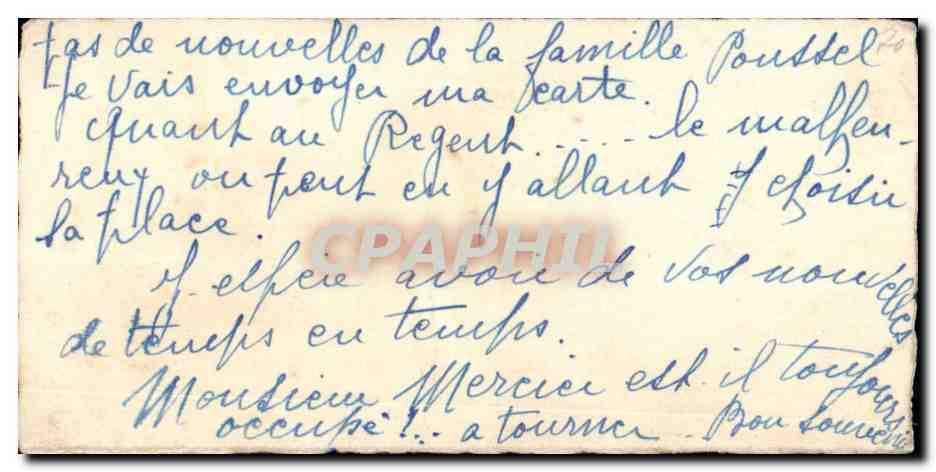 pas de nouvelles de la famille Poussel
Je vais envoyer ma carte. 20
quant au Regent..... le malheu-
reux on peut en y allant y choisir
sa place.
CPAPHIL
J'espère avoir de vos nouvelles
de temps en temps.
Monsieur Mercier est-il toujours
occupé!.. a tourner.. Bon souvenir